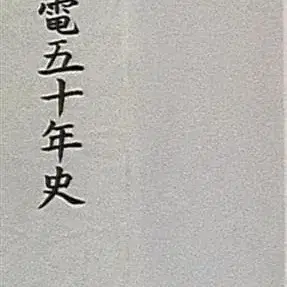 電五十年史